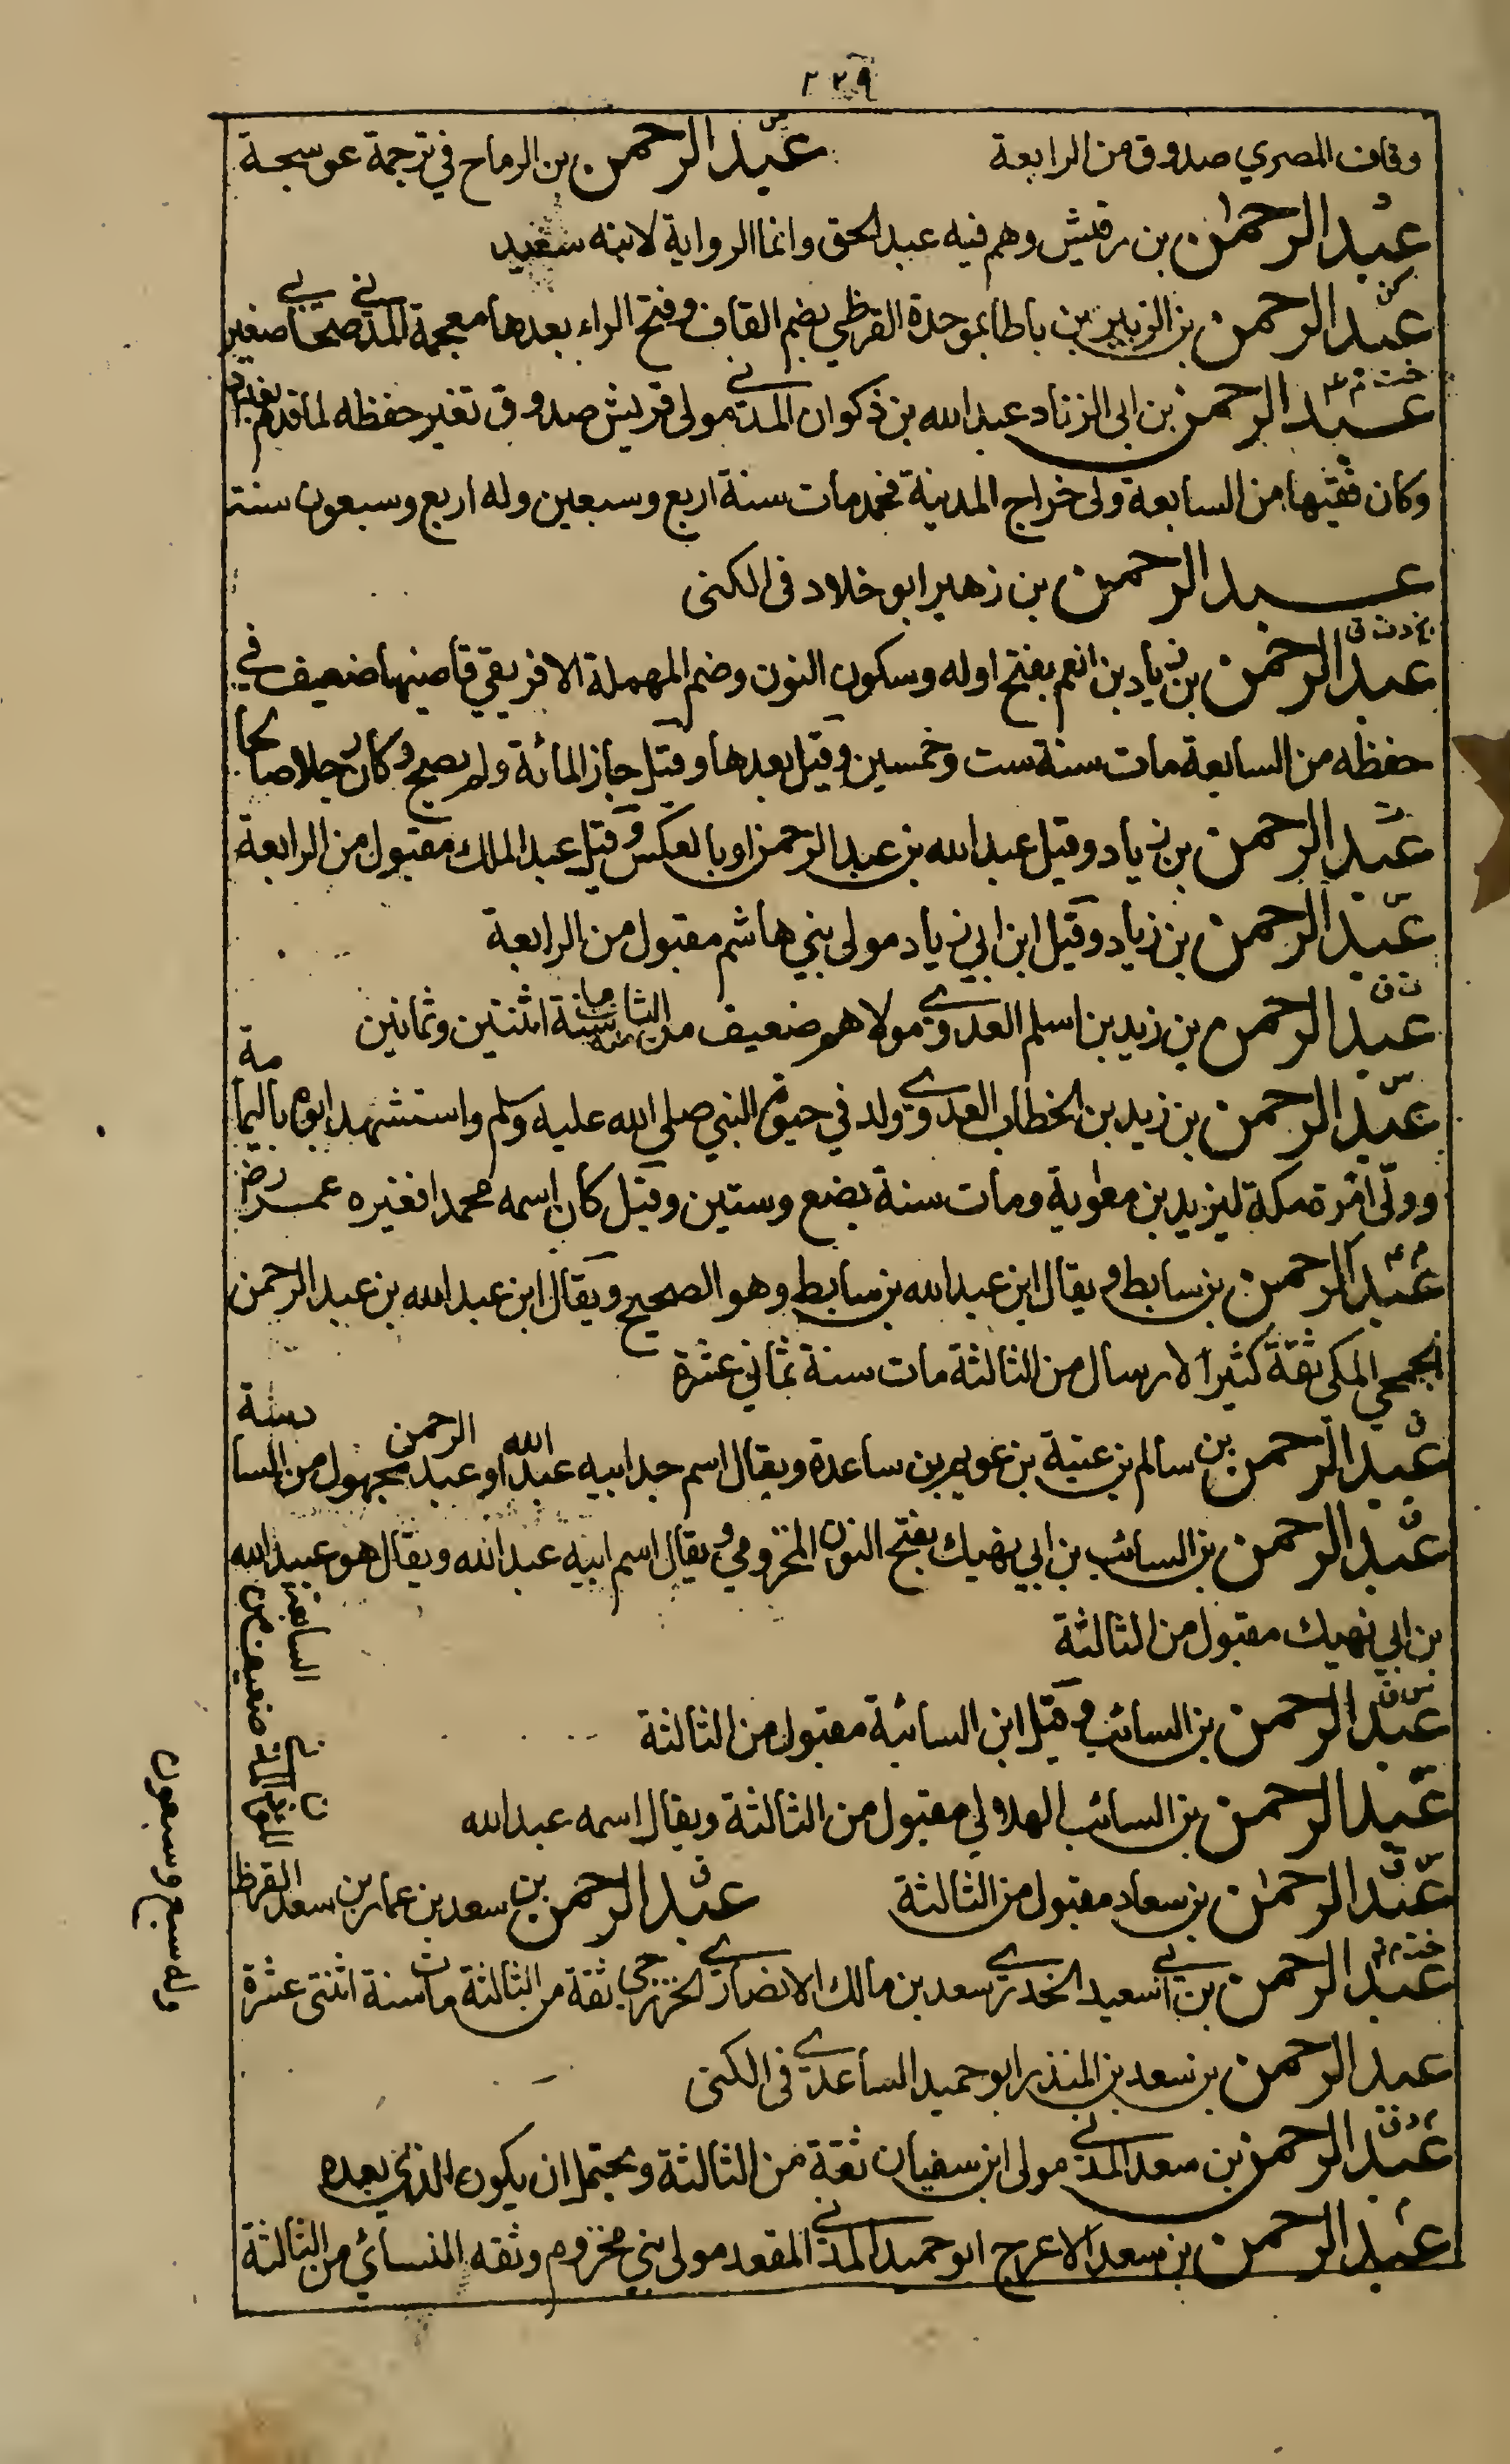 ٢٢٩
وقاف المصري صدوق من الرابعة عبد الرحمن بن الرماح في ترجمة عوسجة
عبد الرحمن بن رقيش وهم فيه عبد الحق وانما الرواية لابنه سعيد
كن
عبد الرحمن بن الزبير بن باطا بموحدة القرظي بضم القاف وفتح الراء بعدها معجمة المدني صحابي صغير
خت م عه
عبد الرحمن بن ابي الزناد عبد الله بن ذكوان المدني مولى قريش صدوق تغير حفظه لما قدم بغداد
وكان فقيها من السابعة ولي خراج المدينة فحمد مات سنة اربع وسبعين وله اربع وسبعون سنة
عبد الرحمن بن زهير ابو خلاد في الكنى
بخ د ت ق
عبد الرحمن بن زياد بن انعم بفتح اوله وسكون النون وضم المهملة الافريقي قاضيها ضعيف في
حفظه من السابعة مات سنة ست وخمسين وقيل بعدها وقيل جاز المائة ولم يصح وكان رجلا صالحا
ت
عبد الرحمن بن زياد وقيل عبد الله بن عبد الرحمن او بالعكس وقيل عبد الملك مقبول من الرابعة
س
عبد الرحمن بن زياد وقيل ابن ابي زياد مولى بني هاشم مقبول من الرابعة
ت ق
عبد الرحمن بن زيد بن اسلم العدوي مولاهم ضعيف من الثامنة مات سنة اثنتين وثمانين
س
عبد الرحمن بن زيد بن الخطاب العدوي ولد في حيوة النبي صلى الله عليه وسلم واستشهد ابوه باليمامة
وولي امرة مكة ليزيد بن معوية ومات سنة بضع وستين وقيل كان اسمه محمدا فغيره عمر رض
م عه
عبد الرحمن بن سابط ويقال ابن عبد الله بن سابط وهو الصحيح ويقال ابن عبد الله بن عبد الرحمن
الجمحي المكي ثقة كثير الارسال من الثالثة مات سنة ثماني عشرة
ق
عبد الرحمن بن سالم بن عتبة بن عويم بن ساعدة ويقال اسم جد ابيه عبد الله او عبد الرحمن مجهول من السادسة
ق
عبد الرحمن بن السائب بن ابي نهيك بفتح النون المخزومي ويقال اسم ابيه عبد الله ويقال هو عبيد الله
بن ابي نهيك مقبول من الثالثة
س ق
عبد الرحمن بن السائب وقيل ابن السائبة مقبول من الثالثة
س
عبد الرحمن بن السائب الهلالي مقبول من الثالثة ويقال اسمه عبد الله
س ق
عبد الرحمن بن سعاد مقبول من الثالثة ق عبد الرحمن بن سعد بن عمار بن سعد القرظ
المدني ضعيف من
السابعة
خت م عه
عبد الرحمن بن ابي سعيد الخدري سعد بن مالك الانصاري الخزرجي ثقة من الثالثة مات سنة اثنتي عشرة
وله سبع وسبعون
عبد الرحمن بن سعد بن المنذر ابو حميد الساعدي في الكنى
م د ق
عبد الرحمن بن سعد المدني مولى ابن سفيان ثقة من الثالثة ويحتمل ان يكون الذي بعده
م
عبد الرحمن بن سعد الاعرج ابو حميد المدني المقعد مولى بني مخزوم وثقه النسائي من الثالثة